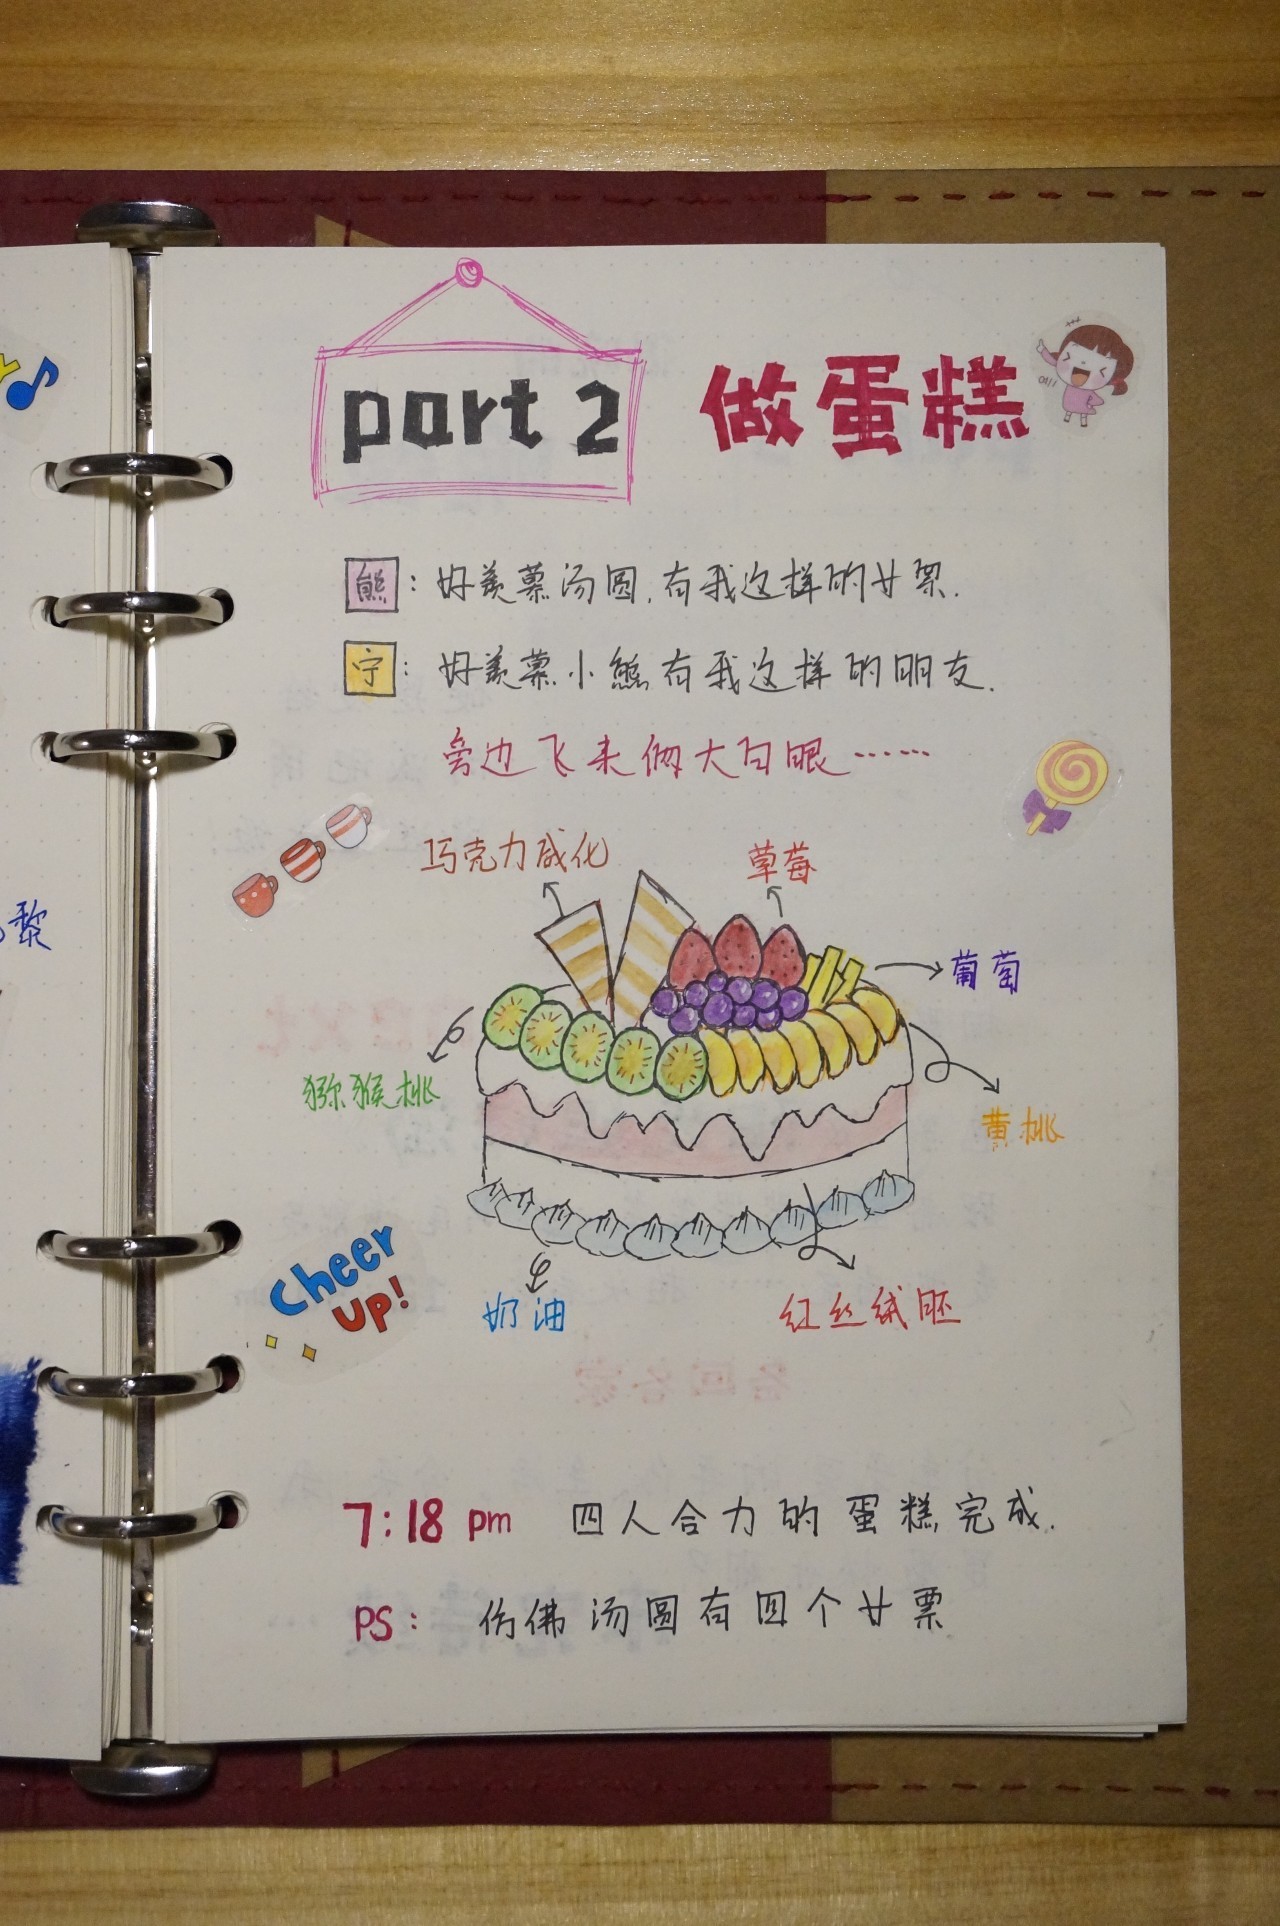 part 2 做蛋糕
熊：好羡慕汤圆，有我这样的女票．
宁：好羡慕小熊有我这样的朋友．
旁边飞来俩大白眼……
巧克力威化
草莓
葡萄
猕猴桃
黄桃
Cheer
UP!
奶油
红丝绒胚
7:18 pm 四人合力的蛋糕完成．
PS： 仿佛汤圆有四个女票
黎